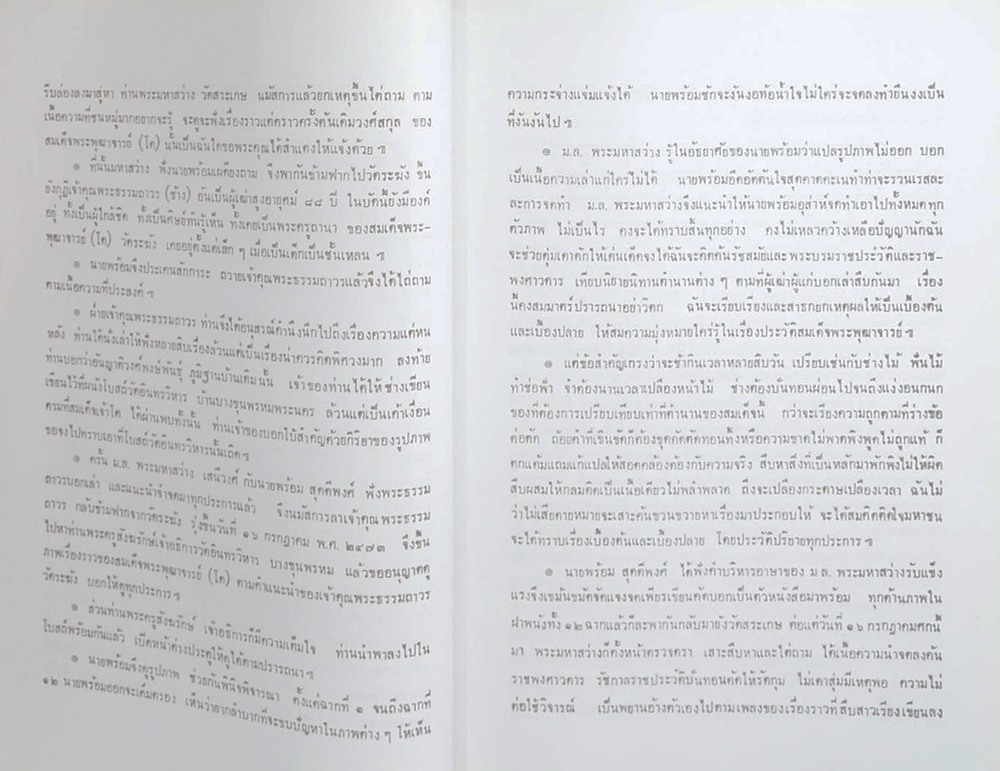 รีบล่องลงมาสู่หา ท่านพระมหาสว่าง วัดสระเกษ นมัสการแล้วยกเหตุขึ้นไต่ถาม ตาม
เนื้อความที่ชนหมู่มากอยากจะรู้ จะดูจะฟังเรื่องราวแต่คราวครั้งต้นเดิมวงศ์สกุล ของ
สมเด็จพระพุฒาจารย์ (โต) นั้นเป็นฉันใดขอพระคุณได้สำแดงให้แจ้งด้วย ฯ
๏ ที่นั้นมหาสว่าง ฟังนายพร้อมเผดียงถาม จึงพากันข้ามฟากไปวัดระฆัง ขึ้น
ยังกุฏิเจ้าคุณพระธรรมถาวร (ช้าง) อันเป็นผู้เฒ่าสูงอายุศม์ ๘๘ ปี ในบัดนี้ยังมีองค์
อยู่ ทั้งเป็นผู้ใกล้ชิด ทั้งเป็นศิษย์ทันรู้เห็น ทั้งเคยเป็นพระครูถานา ของสมเด็จพระ-
พุฒาจารย์ (โต) วัดระฆัง เคยอยู่ตั้งแต่เล็ก ๆ เมื่อเป็นเด็กเป็นชั้นเหลน ฯ
๏ นายพร้อมจึงประเคนสักการะ ถวายเจ้าคุณพระธรรมถาวรแล้วจึงได้ไต่ถาม
ตามเนื้อความที่ประสงค์ ฯ
๏ ฝ่ายเจ้าคุณพระธรรมถาวร ท่านจึงได้อนุสรณ์คำนึงนึกไปถึงเรื่องความแต่หน
หลัง ท่านได้นั่งเล่าให้ฟังหลายสิบเรื่องล้วนแต่เป็นเรื่องน่าควรคิดพิศวงมาก ลงท้าย
ท่านบอกว่าอันญาติวงศ์พงษ์พันธุ์ ภูมิฐานบ้านเดิมนั้น เจ้าของท่านได้ให้ช่างเขียน
เขียนไว้ที่ผนังโบสถ์วัดอินทรวิหาร บ้านบางขุนพรหมพระนคร ล้วนแต่เป็นเค้าเงื่อน
ตามที่สมเด็จเจ้าโต ได้ผ่านพบทั้งนั้น ท่านเจ้าของบอกใบ้สำคัญด้วยกิริยาของรูปภาพ
ขอจงไปทราบเอาที่โบสถ์วัดอินทรวิหารนั้นเถิด ฯ
๏ ครั้น ม.ล. พระมหาสว่าง เสนีวงศ์ กับนายพร้อม สุดดีพงศ์ ฟังพระธรรม
ถาวรบอกเล่า และแนะนำจำจดมาทุกประการแล้ว จึงนมัสการลาเจ้าคุณพระธรรม
ถาวร กลับข้ามฟากจากวัดระฆัง รุ่งขึ้นวันที่ ๑๖ กรกฎาคม พ.ศ. ๒๔๗๓ จึงขึ้น
ไปหาท่านพระครูสังฆรักษ์เจ้าอธิการวัดอินทรวิหาร บางขุนพรหม แล้วขออนุญาตดู
ภาพเรื่องราวของสมเด็จพระพุฒาจารย์ (โต) ตามคำแนะนำของเจ้าคุณพระธรรมถาวร
วัดระฆัง บอกให้ดูทุกประการ ฯ
๏ ส่วนท่านพระครูสังฆรักษ์ เจ้าอธิการก็มีความเต็มใจ ท่านนำพาลงไปใน
โบสถ์พร้อมกันแล้ว เปิดหน้าต่างประตูให้ดูได้ตามปรารถนา ฯ
๏ นายพร้อมจึงดูรูปภาพ ช่วยกันพินิจพิจารณา ตั้งแต่ฉากที่ ๑ จนถึงฉากที่
๑๒ นายพร้อมออกจะเต็มตรอง เห็นว่ายากลำบากที่จะขบปัญหาในภาพต่าง ๆ ให้เห็น
ความกระจ่างแจ่มแจ้งได้ นายพร้อมชักจะงันงอท้อน้ำใจไม่ใคร่จะจดลงทำยืนงงเป็น
ที่งันงันไป ฯ
๏ ม.ล. พระมหาสว่าง รู้ในอัธยาศัยของนายพร้อมว่าแปลรูปภาพไม่ออก บอก
เป็นเนื้อความเล่าแก่ใครไม่ได้ นายพร้อมอึดอัดตันใจสุดคาดคะเนทำท่าจะรวนเรสละ
ละการจดทำ ม.ล. พระมหาสว่างจึงแนะนำให้นายพร้อมอุส่าห์จดทำเอาไปทั้งหมดทุก
ตัวภาพ ไม่เป็นไร คงจะได้ทราบสิ้นทุกอย่าง คงไม่เหลวคว้างเหลือปัญญานักฉัน
จะช่วยคุ้มเดาดักให้เด่นเด็ดจงได้ฉันจะคิดค้นรัชสมัยและพระบรมราชประวัติและราช-
พงศาวดาร เทียบนิยายนิทานตำนานต่าง ๆ ตามที่ผู้เฒ่าผู้แก่บอกเล่าสืบกันมา เรื่อง
นี้คงสมมาตร์ปรารถนาอย่าวิตก ฉันจะเรียบเรียงและสาธกยกเหตุผลให้เป็นเบื้องต้น
และเบื้องปลาย ให้สมความมุ่งหมายใคร่รู้ในเรื่องประวัติสมเด็จพระพุฒาจารย์ ฯ
๏ แต่ข้อสำคัญเกรงว่าจะช้ากินเวลาหลายสิบวัน เปรียบเช่นกับช่างไม้ ฟันไม้
ทำช่อฟ้า จำต้องนานเวลาเปลืองหน้าไม้ ช่างต้องบั่นทอนผ่อนไปจนถึงแง่งอนกนก
ของที่ต้องการเปรียบเทียบเท่าที่ตำนานของสมเด็จนี้ กว่าจะเรียงความถูกตามที่ร่างข้อ
ต่อตัด ถ้อยคำที่เขินขัดก็ต้องขุดคัดตัดทอนทิ้งหรือความขาดไม่พาดพิงพูดไม่ถูกแท้ ก็
ตกแต้มแถมแก้แปลให้สอดคล้องต้องกับความจริง สืบหาสิ่งที่เป็นหลักมาพักพิงไม่ให้ผิด
สืบผสมให้กลมคิดเป็นเนื้อเดียวไม่พลำพลาด ถึงจะเปลืองกระดาษเปลืองเวลา ฉันไม่
ว่าไม่เสียดายหมายจะเสาะค้นขวนขวายหาเรื่องมาประกอบให้ จะได้สมคิดติดใจมหาชน
จะได้ทราบเรื่องเบื้องต้นและเบื้องปลาย โดยประวัติปริยายทุกประการ ฯ
๏ นายพร้อม สุดดีพงศ์ ได้ฟังคำบริหารอาษาของ ม.ล. พระมหาสว่างรับแข็ง
แรงจึงเขม้นขมัดจัดแจงจดเพียรเขียนคัดบอกเป็นตัวหนังสือมาพร้อม ทุกด้านภาพใน
ฝาผนังทั้ง ๑๒ ฉากแล้วก็ละพากันกลับมายังวัดสระเกษ ต่อแต่วันที่ ๑๖ กรกฎาคมศกนี้
มา พระมหาสว่างก็ตั้งหน้าตรวจตรา เสาะสืบหาและไต่ถาม ได้เนื้อความนำจดลงค้น
ราชพงศาวดาร รัชกาลราชประวัติบั่นทอนตัดให้รัดกุม ไม่เดาสุ่มมีเหตุพอ ความไม่
ต่อใช้วิจารณ์ เป็นพยานอ้างตัวเองไปตามเพลงของเรื่องราวที่สืบสาวเรียงเขียนลง